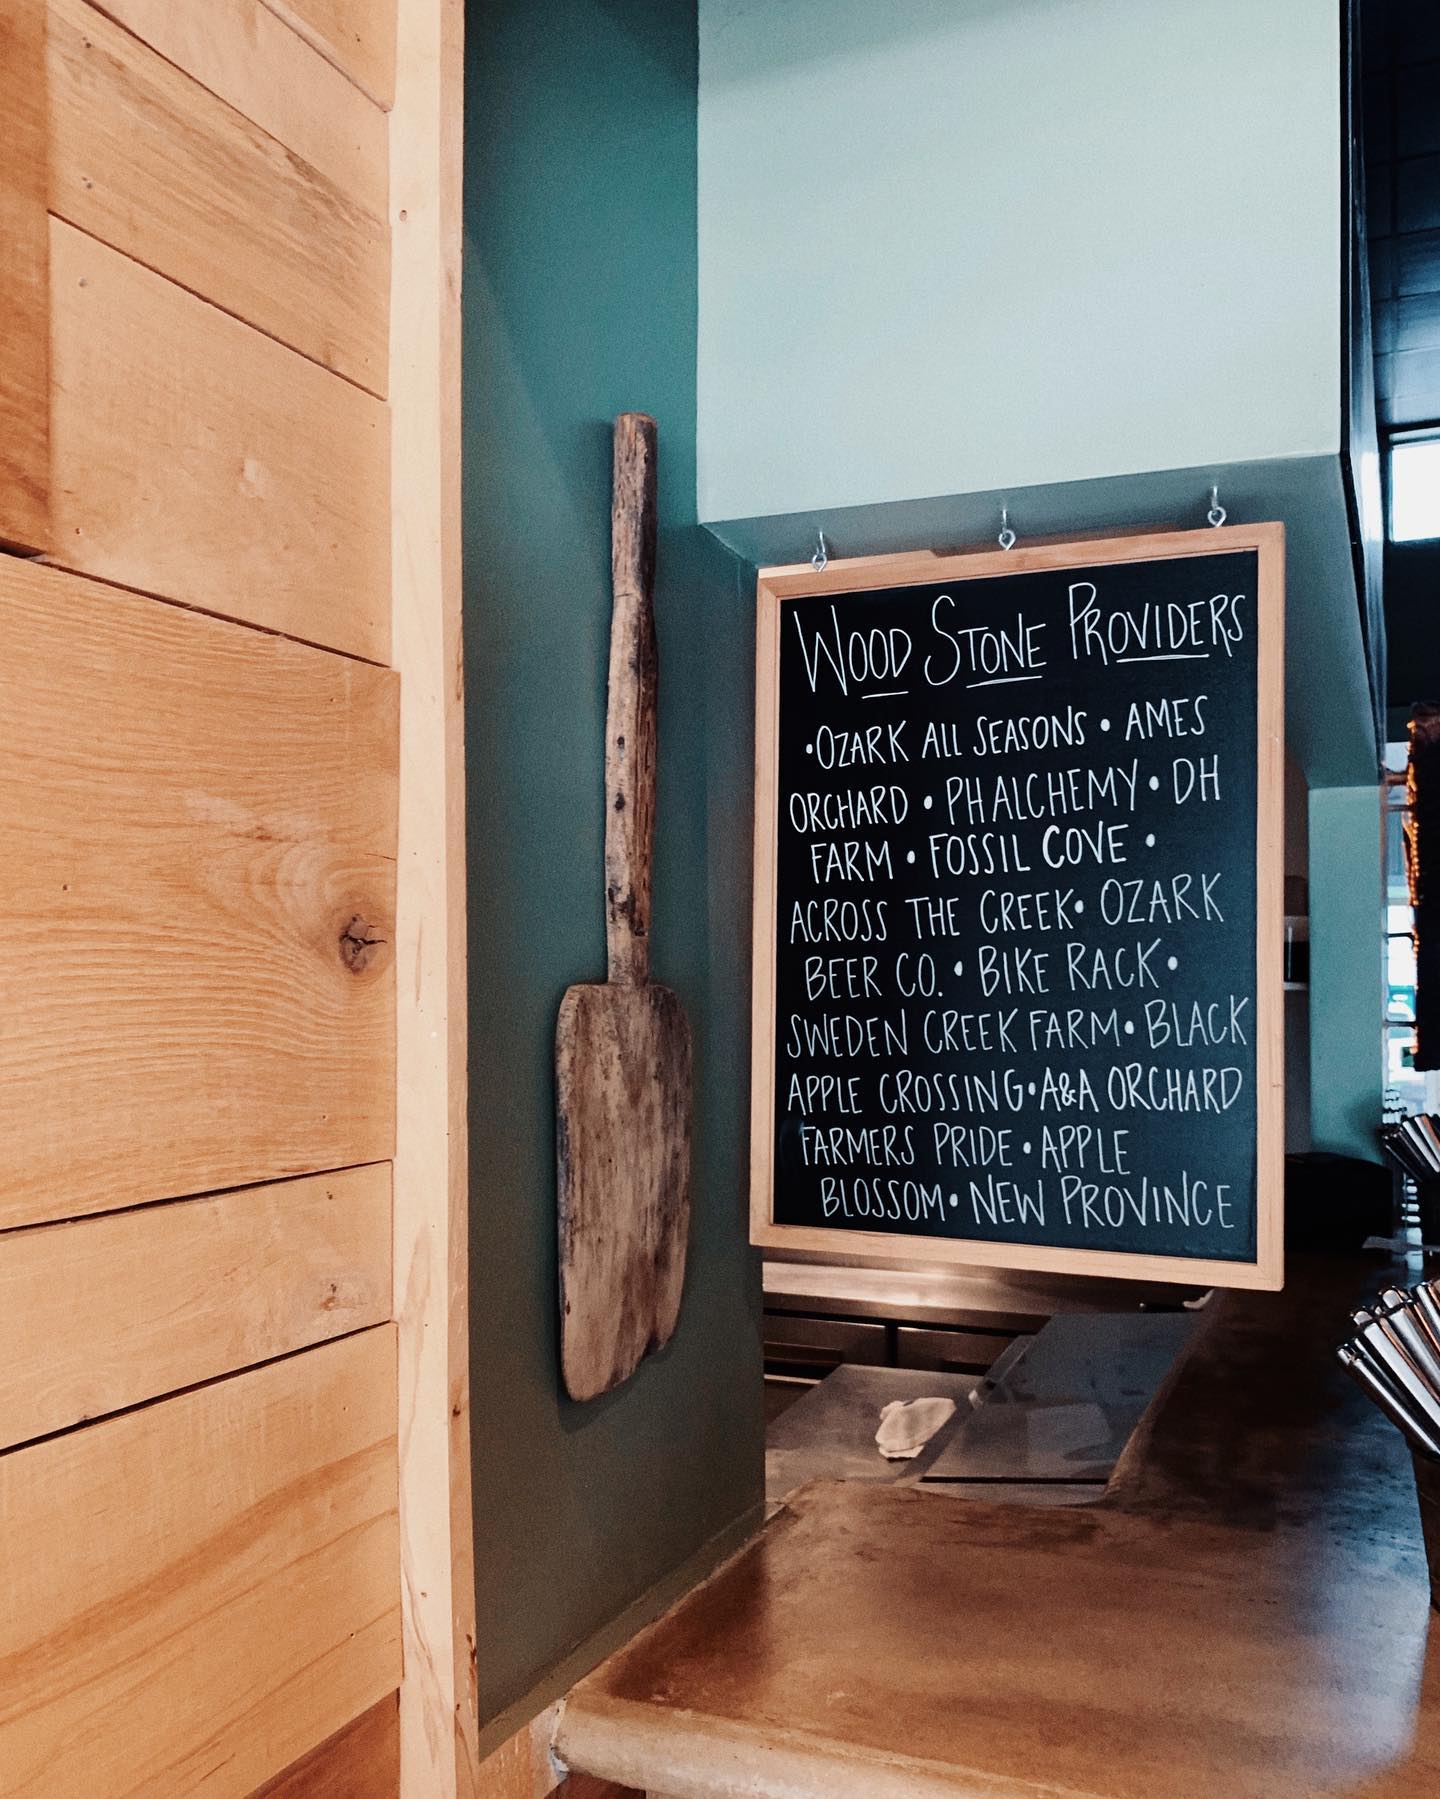 WOOD STONE PROVIDERS
•OZARK ALL SEASONS • AMES
ORCHARD • PHALCHEMY • DH
FARM • FOSSIL COVE •
ACROSS THE CREEK• OZARK
BEER CO. • BIKE RACK•
SWEDEN CREEK FARM• BLACK
APPLE CROSSING•A&A ORCHARD
FARMERS PRIDE • APPLE
BLOSSOM• NEW PROVINCE